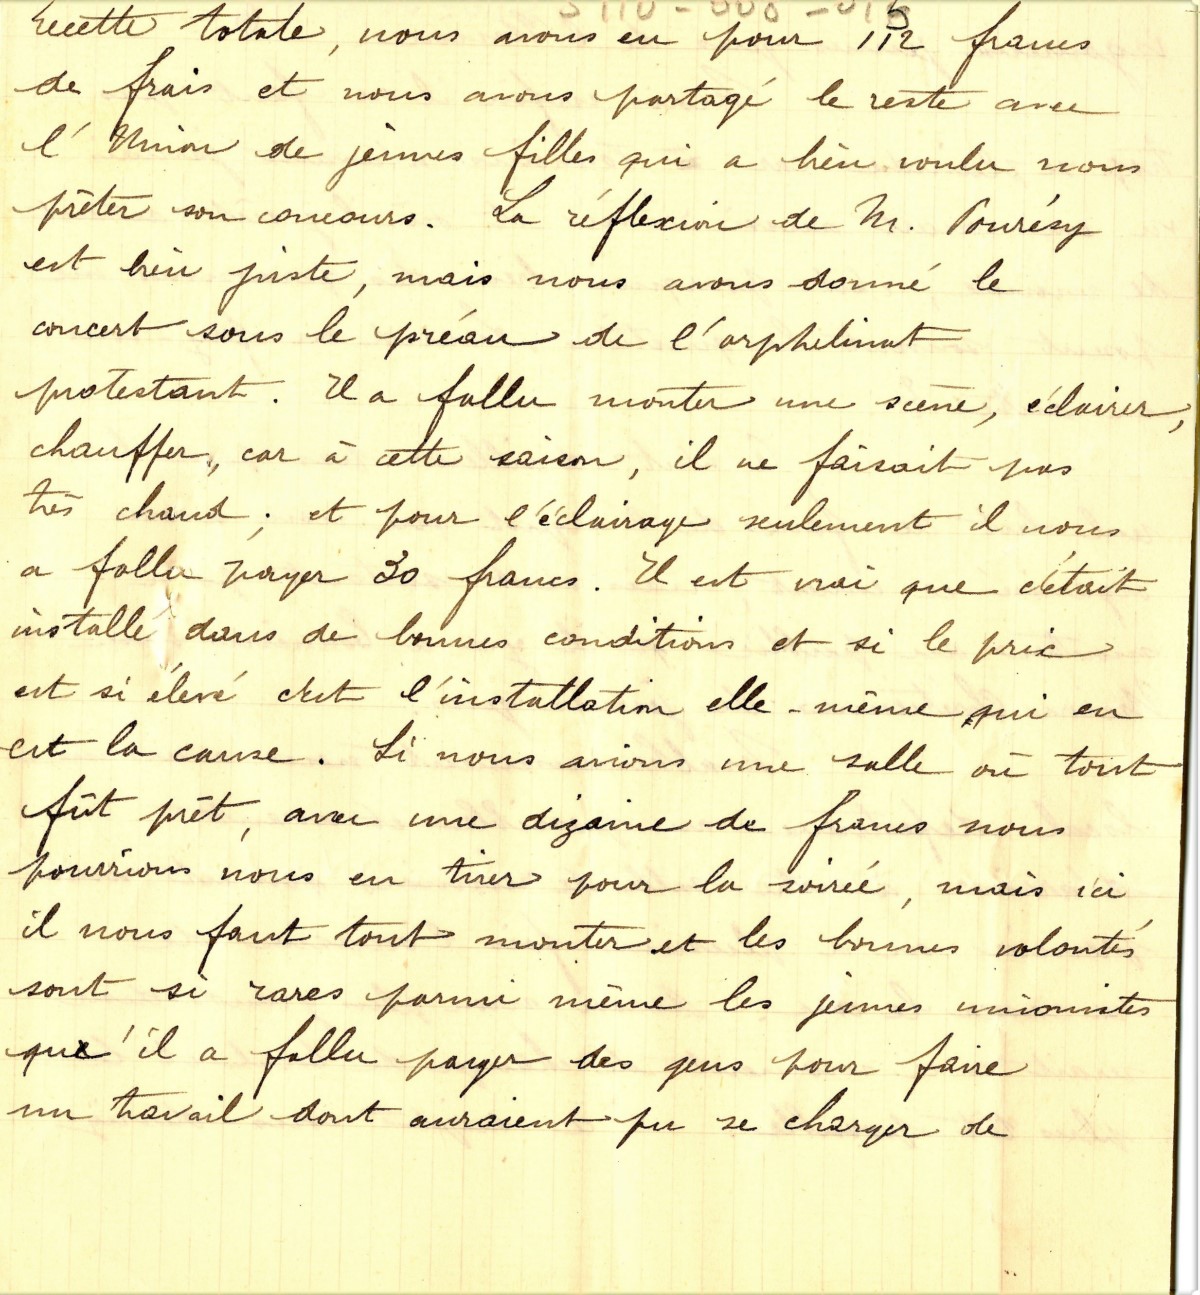 recette totale, nous avons eu pour 112 francs
de frais et nous avons partagé le reste avec
l'Union de jeunes filles qui a bien voulu nous
prêter son concours. La réflexion de M. Pourésy
est bien juste, mais nous avons donné le
concert sous le préau de l'orphelinat
protestant. Il a fallu monter une scène, éclairer,
chauffer, car à cette saison, il ne faisait pas
très chaud ; et pour l'éclairage seulement il nous
a fallu payer 30 francs. Il est vrai que c'était
installé dans de bonnes conditions et si le prix
est si élevé c'est l'installation elle-même qui en
est la cause. Si nous avions une salle où tout
fût prêt, avec une dizaine de francs nous
pourrions nous en tirer pour la soirée, mais ici
il nous faut tout monter et les bonnes volontés
sont si rares parmi même les jeunes unionistes
qu'il a fallu payer des gens pour faire
un travail dont auraient pu se charger de